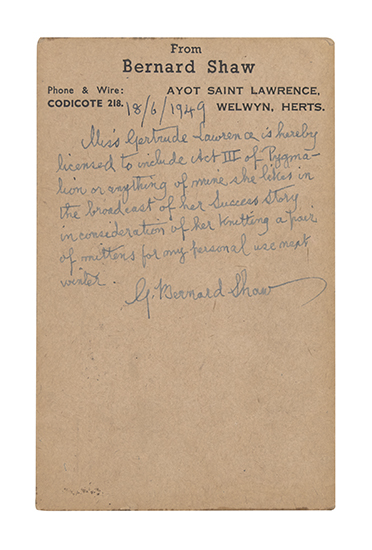 From
Bernard Shaw
Phone & Wire: AYOT SAINT LAWRENCE,
CODICOTE 218. 18/6/1949 WELWYN, HERTS.
Miss Gertrude Lawrence is hereby
licensed to include Act III of Pygma-
lion or anything of mine she likes in
the broadcast of her Success Story
in consideration of her knitting a pair
of mittens for my personal use next
winter.
G. Bernard Shaw